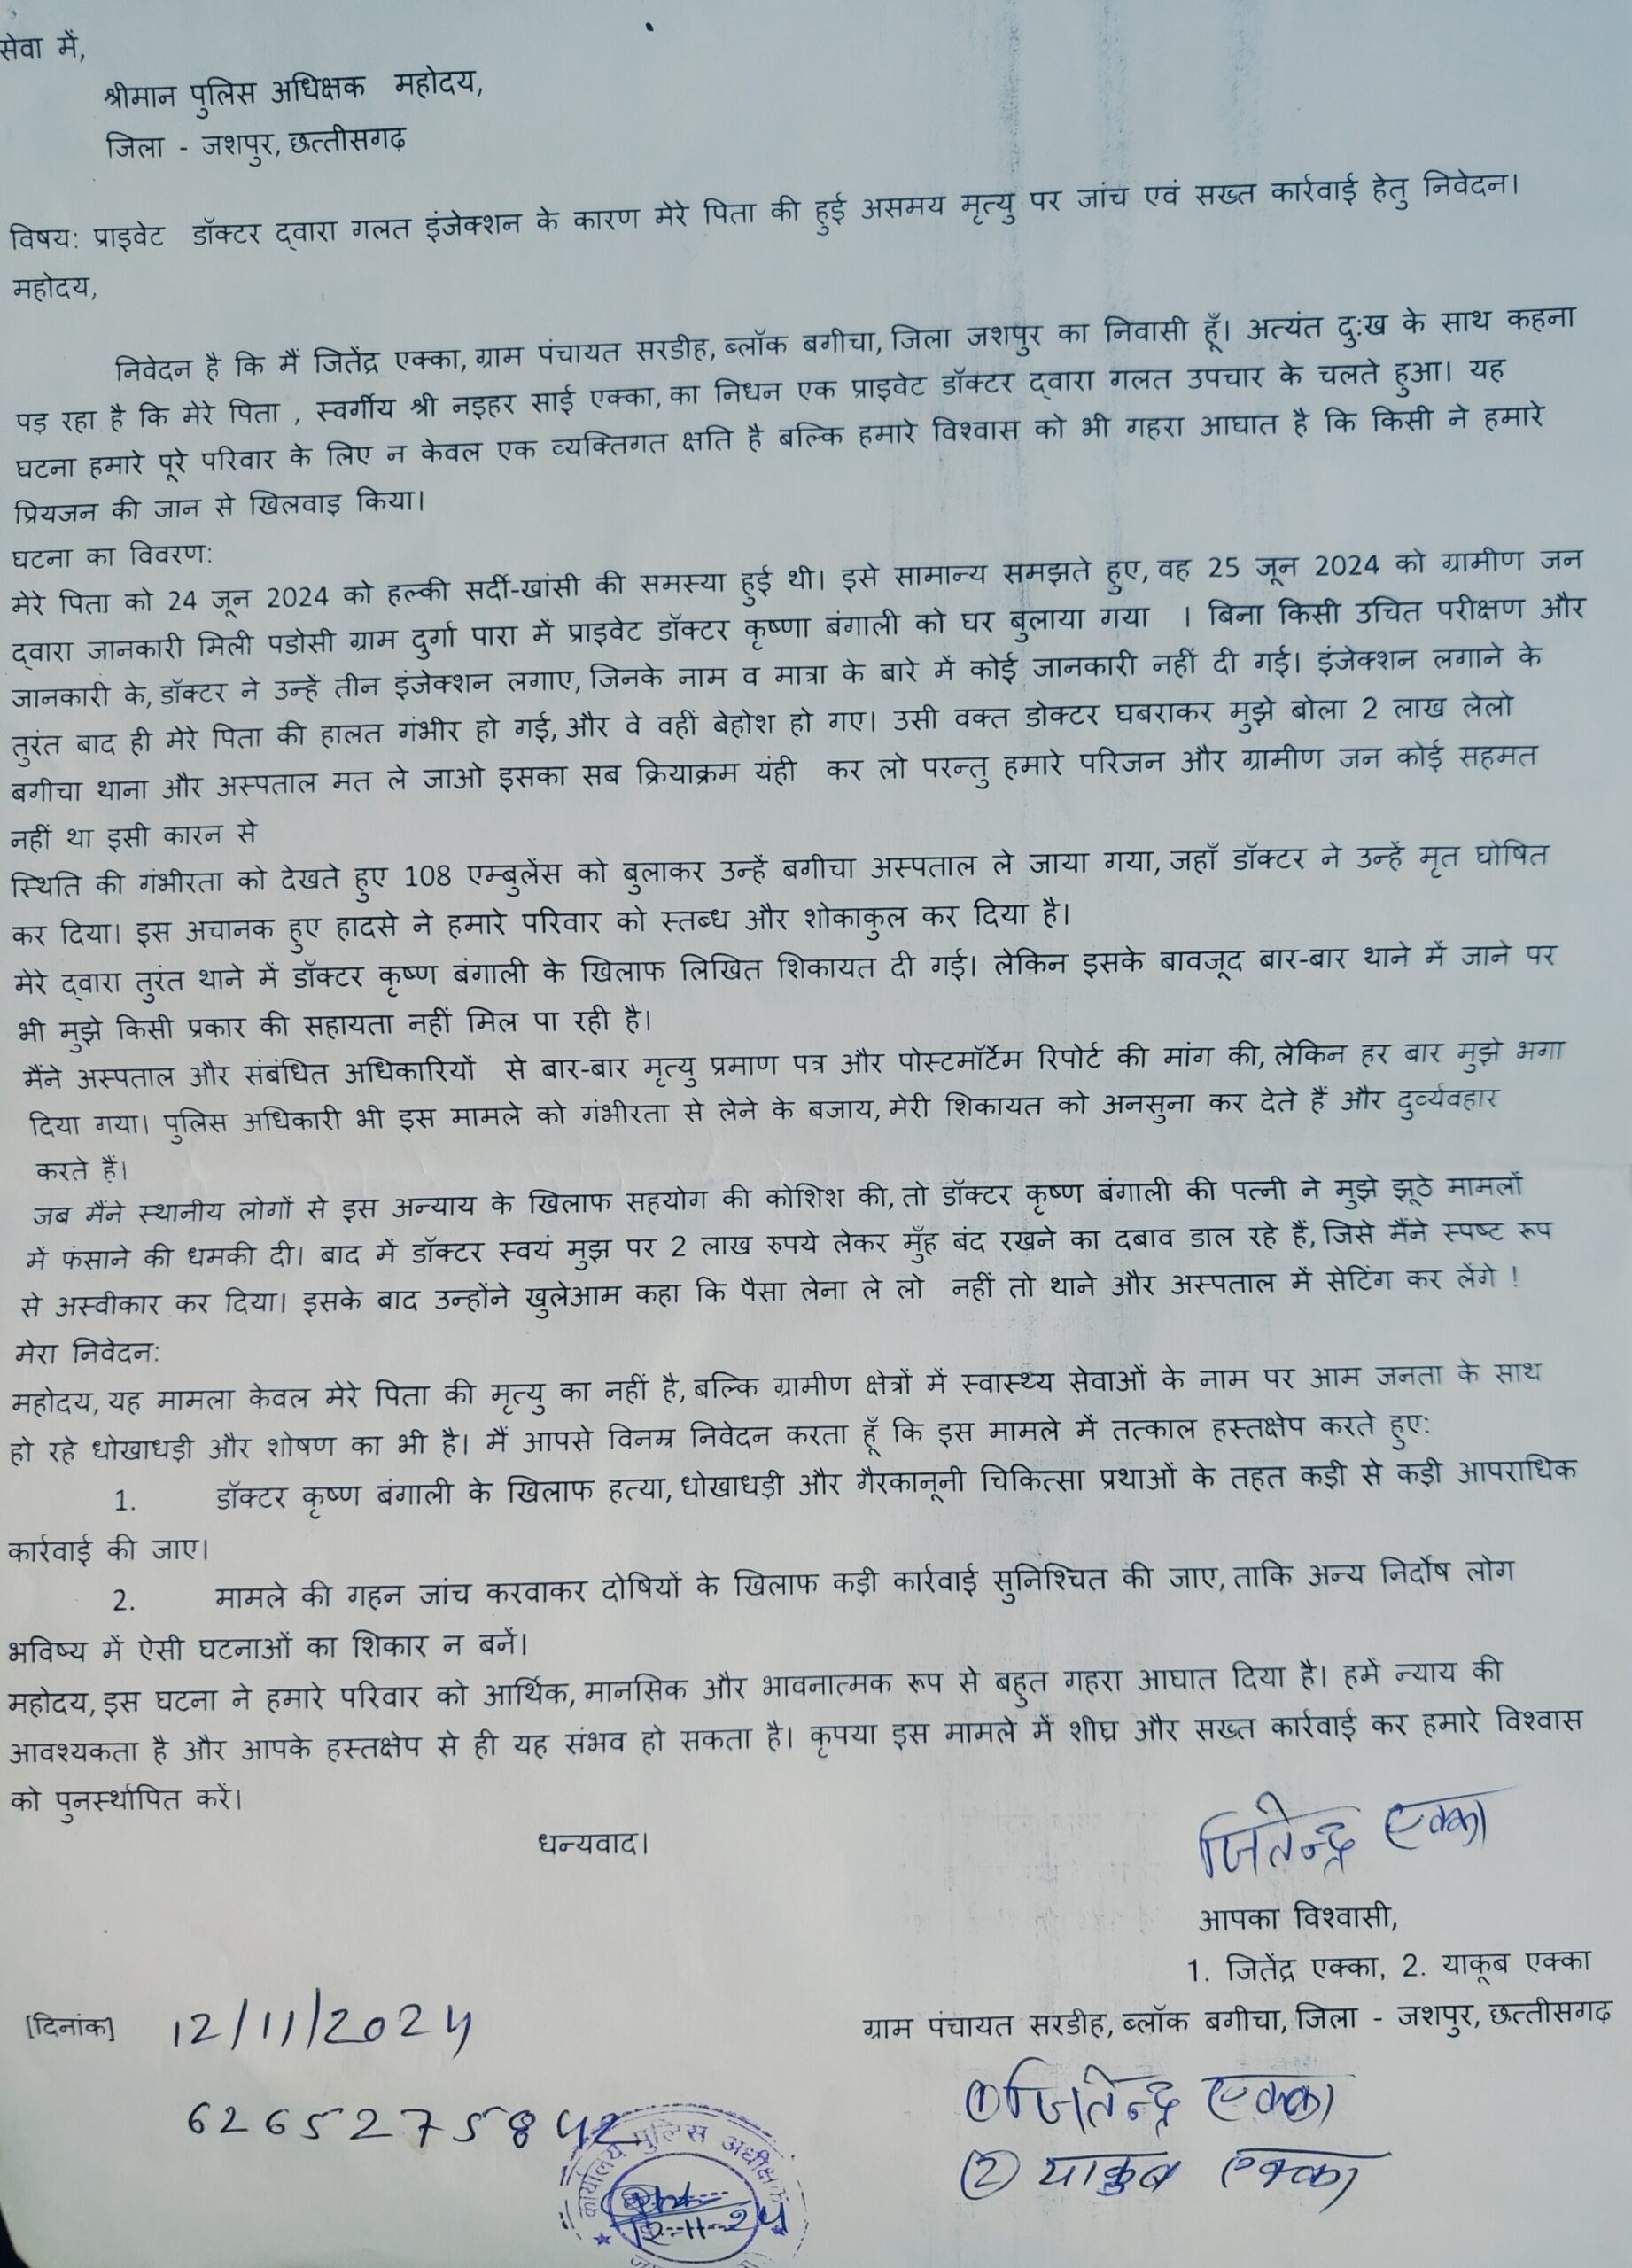 सेवा में,
श्रीमान पुलिस अधिक्षक महोदय,
जिला - जशपुर, छत्तीसगढ़
विषय: प्राइवेट डॉक्टर द्वारा गलत इंजेक्शन के कारण मेरे पिता की हुई असमय मृत्यु पर जांच एवं सख्त कार्रवाई हेतु निवेदन।
महोदय,
निवेदन है कि मैं जितेंद्र एक्का, ग्राम पंचायत सरडीह, ब्लॉक बगीचा, जिला जशपुर का निवासी हूँ। अत्यंत दु:ख के साथ कहना
पड़ रहा है कि मेरे पिता , स्वर्गीय श्री नइहर साई एक्का, का निधन एक प्राइवेट डॉक्टर द्वारा गलत उपचार के चलते हुआ। यह
घटना हमारे पूरे परिवार के लिए न केवल एक व्यक्तिगत क्षति है बल्कि हमारे विश्वास को भी गहरा आघात है कि किसी ने हमारे
प्रियजन की जान से खिलवाड़ किया।
घटना का विवरण:
मेरे पिता को 24 जून 2024 को हल्की सर्दी-खांसी की समस्या हुई थी। इसे सामान्य समझते हुए, वह 25 जून 2024 को ग्रामीण जन
द्वारा जानकारी मिली पडोसी ग्राम दुर्गा पारा में प्राइवेट डॉक्टर कृष्णा बंगाली को घर बुलाया गया । बिना किसी उचित परीक्षण और
जानकारी के, डॉक्टर ने उन्हें तीन इंजेक्शन लगाए, जिनके नाम व मात्रा के बारे में कोई जानकारी नहीं दी गई। इंजेक्शन लगाने के
तुरंत बाद ही मेरे पिता की हालत गंभीर हो गई, और वे वहीं बेहोश हो गए। उसी वक्त डोक्टर घबराकर मुझे बोला 2 लाख लेलो
बगीचा थाना और अस्पताल मत ले जाओ इसका सब क्रियाक्रम यंही कर लो परन्तु हमारे परिजन और ग्रामीण जन कोई सहमत
नहीं था इसी कारन से
स्थिति की गंभीरता को देखते हुए 108 एम्बुलेंस को बुलाकर उन्हें बगीचा अस्पताल ले जाया गया, जहाँ डॉक्टर ने उन्हें मृत घोषित
कर दिया। इस अचानक हुए हादसे ने हमारे परिवार को स्तब्ध और शोकाकुल कर दिया है।
मेरे द्वारा तुरंत थाने में डॉक्टर कृष्ण बंगाली के खिलाफ लिखित शिकायत दी गई। लेकिन इसके बावजूद बार-बार थाने में जाने पर
भी मुझे किसी प्रकार की सहायता नहीं मिल पा रही है।
मैंने अस्पताल और संबंधित अधिकारियों से बार-बार मृत्यु प्रमाण पत्र और पोस्टमॉर्टम रिपोर्ट की मांग की, लेकिन हर बार मुझे भगा
दिया गया। पुलिस अधिकारी भी इस मामले को गंभीरता से लेने के बजाय, मेरी शिकायत को अनसुना कर देते हैं और दुर्व्यवहार
करते हैं।
जब मैंने स्थानीय लोगों से इस अन्याय के खिलाफ सहयोग की कोशिश की, तो डॉक्टर कृष्ण बंगाली की पत्नी ने मुझे झूठे मामलों
में फंसाने की धमकी दी। बाद में डॉक्टर स्वयं मुझ पर 2 लाख रुपये लेकर मुँह बंद रखने का दबाव डाल रहे हैं, जिसे मैंने स्पष्ट रूप
से अस्वीकार कर दिया। इसके बाद उन्होंने खुलेआम कहा कि पैसा लेना ले लो नहीं तो थाने और अस्पताल में सेटिंग कर लेंगे !
मेरा निवेदन:
महोदय, यह मामला केवल मेरे पिता की मृत्यु का नहीं है, बल्कि ग्रामीण क्षेत्रों में स्वास्थ्य सेवाओं के नाम पर आम जनता के साथ
हो रहे धोखाधड़ी और शोषण का भी है। मैं आपसे विनम्र निवेदन करता हूँ कि इस मामले में तत्काल हस्तक्षेप करते हुए:
1. डॉक्टर कृष्ण बंगाली के खिलाफ हत्या, धोखाधड़ी और गैरकानूनी चिकित्सा प्रथाओं के तहत कड़ी से कड़ी आपराधिक
कार्रवाई की जाए।
2. मामले की गहन जांच करवाकर दोषियों के खिलाफ कड़ी कार्रवाई सुनिश्चित की जाए, ताकि अन्य निर्दोष लोग
भविष्य में ऐसी घटनाओं का शिकार न बनें।
महोदय, इस घटना ने हमारे परिवार को आर्थिक, मानसिक और भावनात्मक रूप से बहुत गहरा आघात दिया है। हमें न्याय की
आवश्यकता है और आपके हस्तक्षेप से ही यह संभव हो सकता है। कृपया इस मामले में शीघ्र और सख्त कार्रवाई कर हमारे विश्वास
को पुनर्स्थापित करें।
धन्यवाद।
जितेन्द्र एक्का
आपका विश्वासी,
1. जितेंद्र एक्का, 2. याकूब एक्का
[दिनांक] 12/11/2024
ग्राम पंचायत सरडीह, ब्लॉक बगीचा, जिला - जशपुर, छत्तीसगढ़
① जितेन्द्र एक्का
6265275842
② याकुब एक्का
कार्यालय पुलिस अधीक्षक
12-11-24